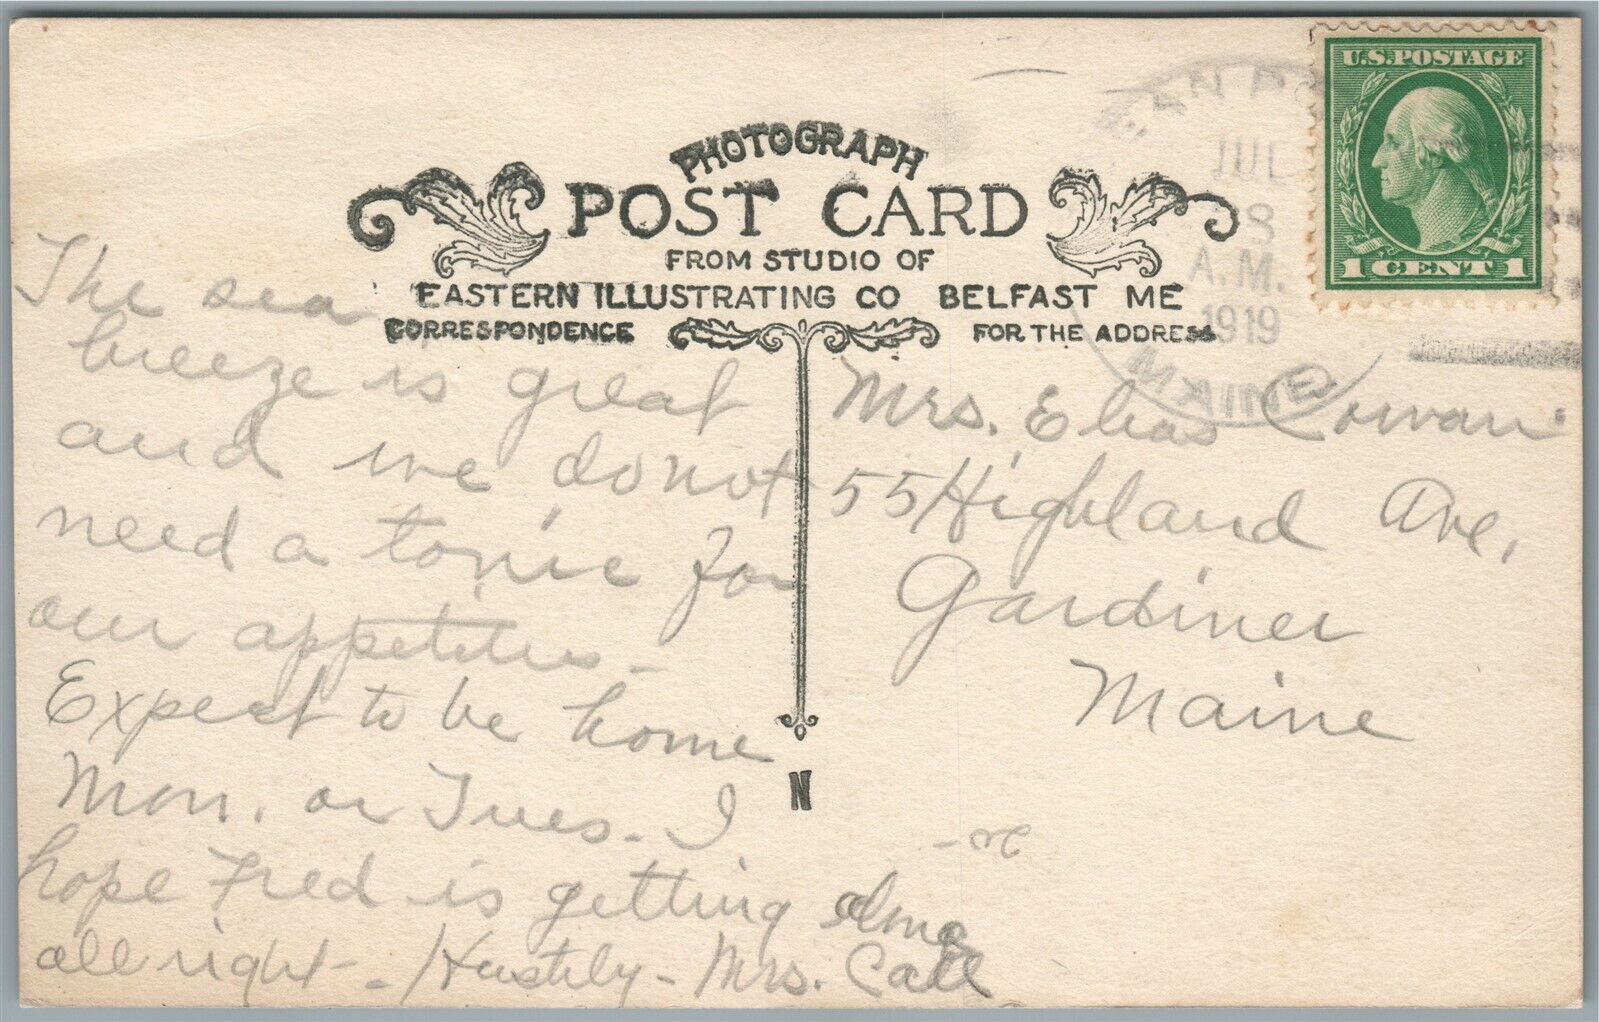 PHOTOGRAPH
POST CARD
FROM STUDIO OF
EASTERN ILLUSTRATING CO BELFAST ME
CORRESPONDENCE
FOR THE ADDRESS
U.S. POSTAGE
1 CENT 1
JUL
A.M.
1919
MAINE
The sea
breeze is great
and we do not
need a tonic for
our appetites -
Expect to be home
Mon. or Tues. I
hope Fred is getting along
all right - Hastily - Mrs. Call
Mrs. Elias Cowan
55 Highland Ave,
Gardiner
Maine
N